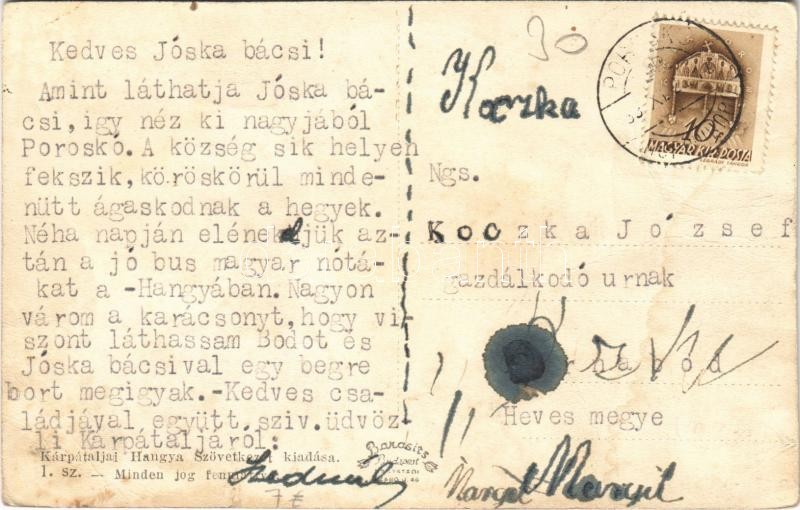 Kedves Jóska bácsi!
Amint láthatja Jóska bá-
csi, igy néz ki nagyjából
Poroskó. A község sik helyen
fekszik, köröskörül minde-
nütt ágaskodnak a hegyek.
Néha napján elénekeljük az-
tán a jó bus magyar nótá-
kat a -Hangyában. Nagyon
várom a karácsonyt, hogy vi-
szont láthassam Bodot és
Jóska bácsival egy begre
bort megigyak.-Kedves csa-
ládjával együtt sziv. üdvöz
li Kárpátaljáról:
Kárpátaljai Hangya Szövetkezet kiadása.
1. sz. — Minden jog
Barasits
Budapest
30
Koczka
10
MAGYAR KIR. POSTA
Ngs.
Koczka József
gazdálkodó urnak
Bod
Heves megye
Margit Margit